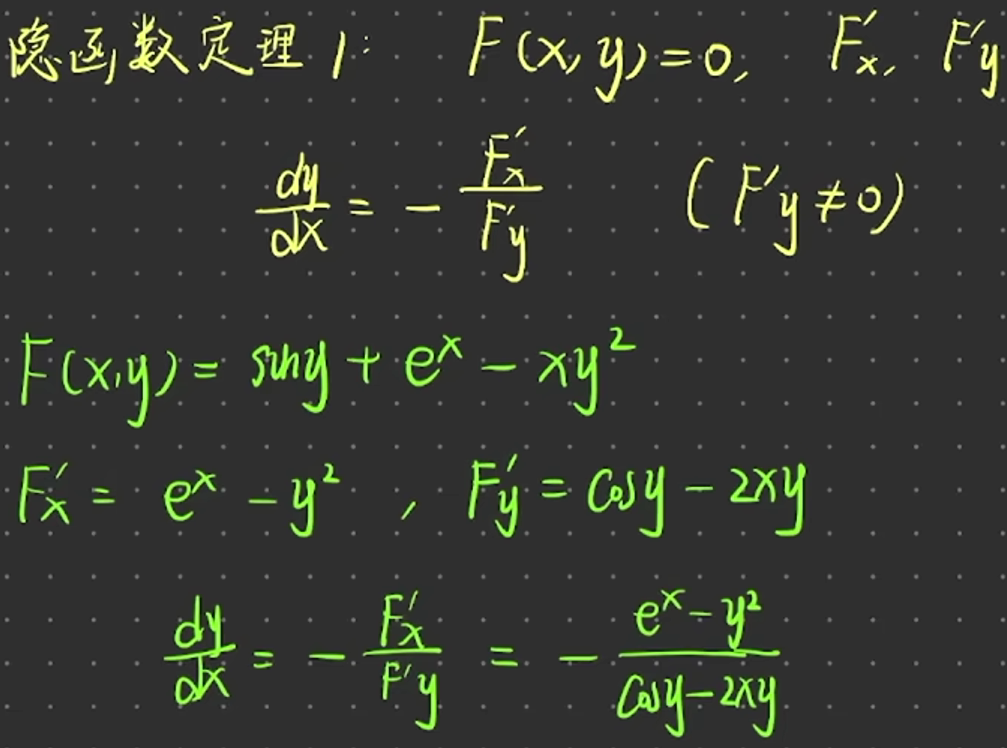 隐函数定理1: F(x,y)=0, F′x, F′y
dy/dx = - F′x/F′y (F′y≠0)
F(x,y) = siny + eˣ - xy²
F′x = eˣ - y² , F′y = cosy - 2xy
dy/dx = - F′x/F′y = - (eˣ-y²)/(cosy-2xy)